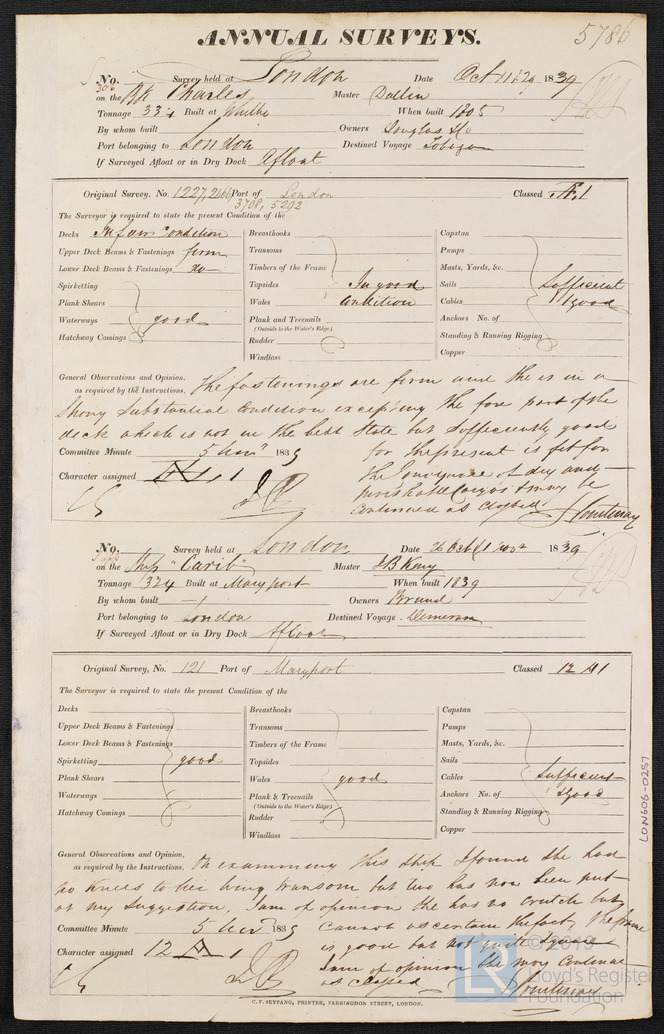 ANNUAL SURVEYS. 5786
No. Survey held at London Date Oct 11 & 29 1839
306
on the Bk Charles Master Dallin
Tonnage 334 Built at Whitby When built 1805
By whom built Owners Douglas & Co
Port belonging to London Destined Voyage Tobago
If Surveyed Afloat or in Dry Dock Afloat
Original Survey, No. 1227, Port of London Classed Æ.1
3708, 5292
The Surveyor is required to state the present Condition of the
Decks In fair Condition Breasthooks Capstan
Upper Deck Beams & Fastenings firm Transoms Pumps
Lower Deck Beams & Fastenings do Timbers of the Frame Masts, Yards, &c.
Spirketting Topsides In good Sails Sufficient
Plank Shears Wales Condition Cables & good
Waterways good Plank and Treenails Anchors No. of
(Outside to the Water's Edge)
Hatchway Comings Rudder Standing & Running Rigging
Windlass Copper
General Observations and Opinion, The fastenings are firm and she is in a
as required by the Instructions,
strong substantial condition excepting the fore part of the
deck which is not in the best state but sufficiently good
Committee Minute 5 Nov 1839 for the present is fit for
the Conveyance of dry and
Character assigned Æ 1 perishable Cargos & may be
continued as classed Courtenay
No. Survey held at London Date 26 Oct 1839
on the Ship "Carib" Master J B Keny
Tonnage 324 Built at Maryport When built 1839
By whom built Owners Brand
Port belonging to London Destined Voyage Demerara
If Surveyed Afloat or in Dry Dock Afloat
Original Survey, No. 121 Port of Maryport Classed 12 A1
The Surveyor is required to state the present Condition of the
Decks Breasthooks Capstan
Upper Deck Beams & Fastenings Transoms Pumps
Lower Deck Beams & Fastenings Timbers of the Frame Masts, Yards, &c.
Spirketting good Topsides Sails
Plank Shears Wales good Cables Sufficient
Waterways Plank & Treenails Anchors No. of & good
(Outside to the Water's Edge)
Hatchway Comings Rudder Standing & Running Rigging
Windlass Copper
General Observations and Opinion, On examining this Ship I found she had
as required by the Instructions,
no Knees to her wing transom but two has now been put
at my suggestion, I am of opinion she has no crutch but
Committee Minute 5 Nov 1839 cannot ascertain the fact, the frame
is good but not quite square
Character assigned 12 A 1 I am of opinion she may continue
as classed Courtenay
C. F. SEYFANG, PRINTER, FARRINGDON STREET, LONDON.
LON606-0257
© 2019
Lloyd's Register
Foundation